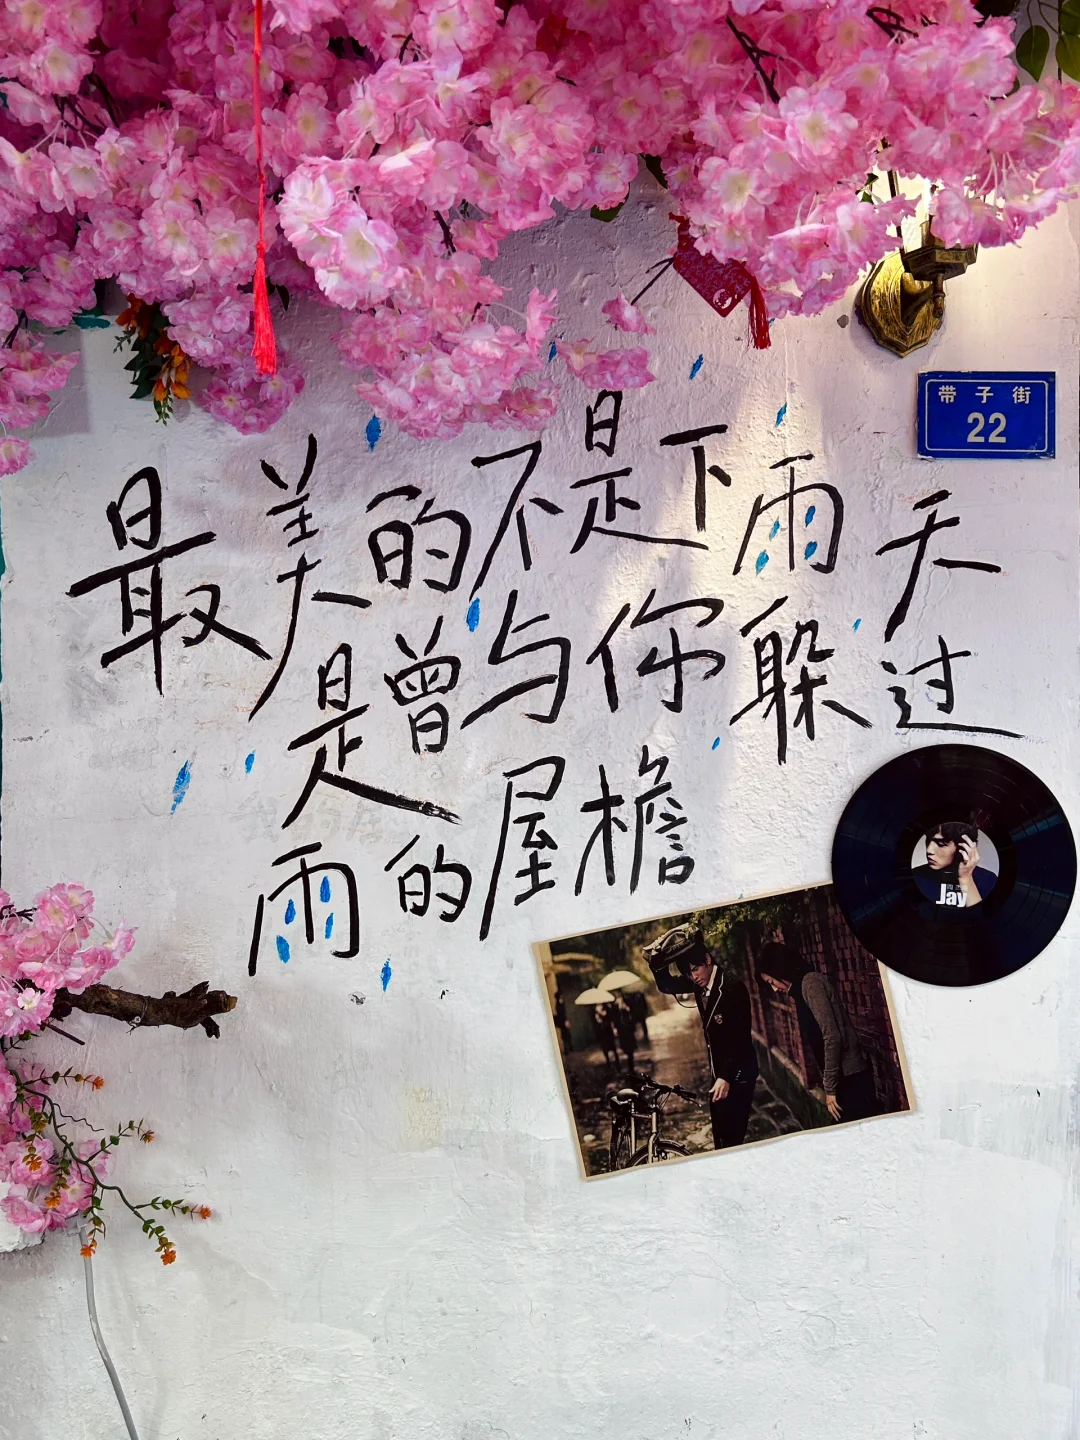 带子街
22
最美的不是下雨天
是曾与你躲过
雨的屋檐
Jay